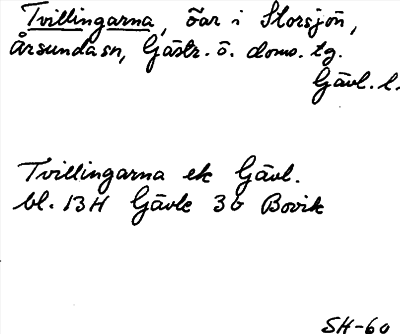 Tvillingarna, öar i Storsjön,
Årsunda sn, Gästr. ö. doms. tg.
Gävl. l.
Tvillingarna ek Gävl.
bl. 13H Gävle 3b Bovik
SH-60